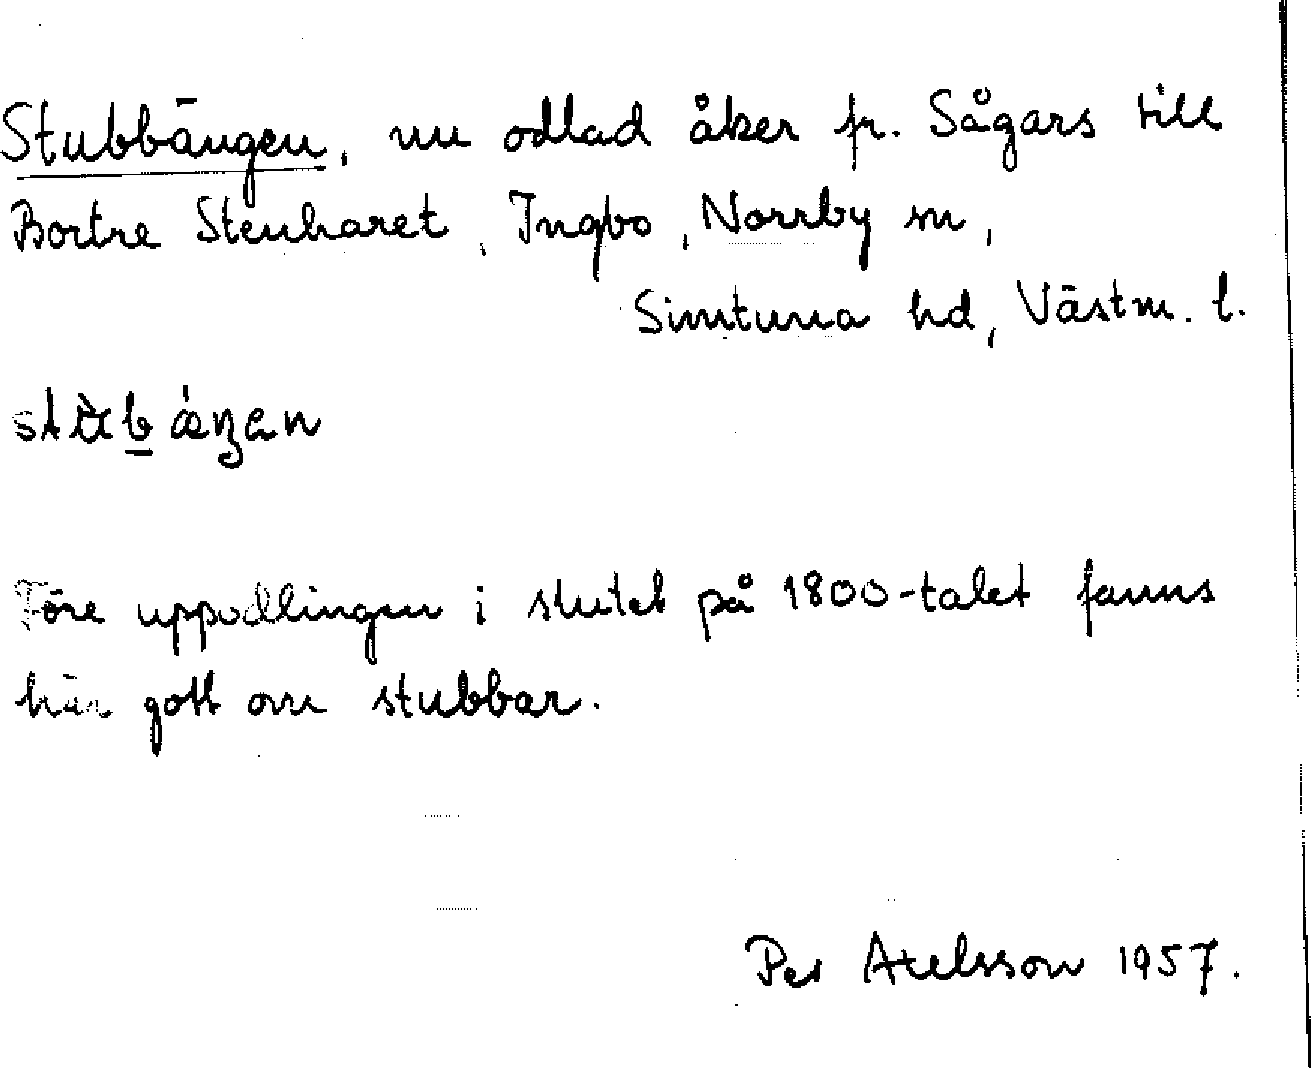 Stubbängen, nu odlad åker fr. Sågars till
Bortre Stenharet, Ingbo, Norrby sn,
Simtuna hd, Västm. l.
Före uppodlingen i slutet på 1800-talet fanns
här gott om stubbar.
Per Axelsson 1957.